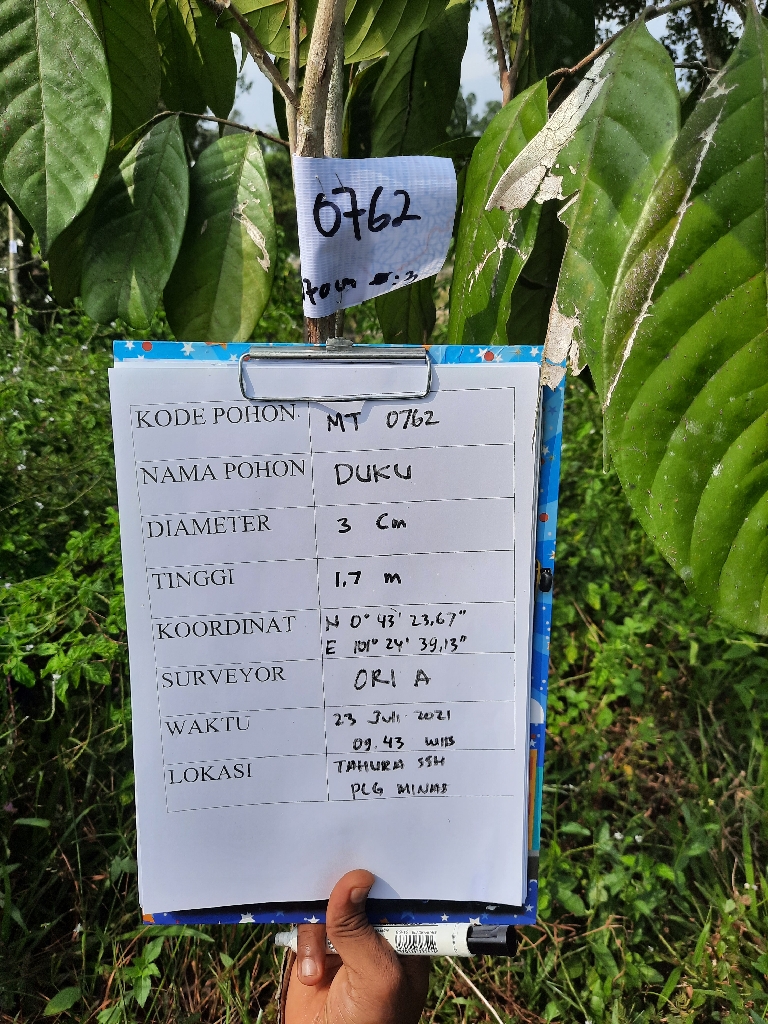 0762
KODE POHON MT 0762
NAMA POHON DUKU
DIAMETER 3 Cm
TINGGI 1,7 m
KOORDINAT N 0° 43' 23,67"
E 101° 24' 39,13"
SURVEYOR ORI A
WAKTU 23 Juli 2021
09.43 WIB
LOKASI TAHURA SSH
PLG MINAS